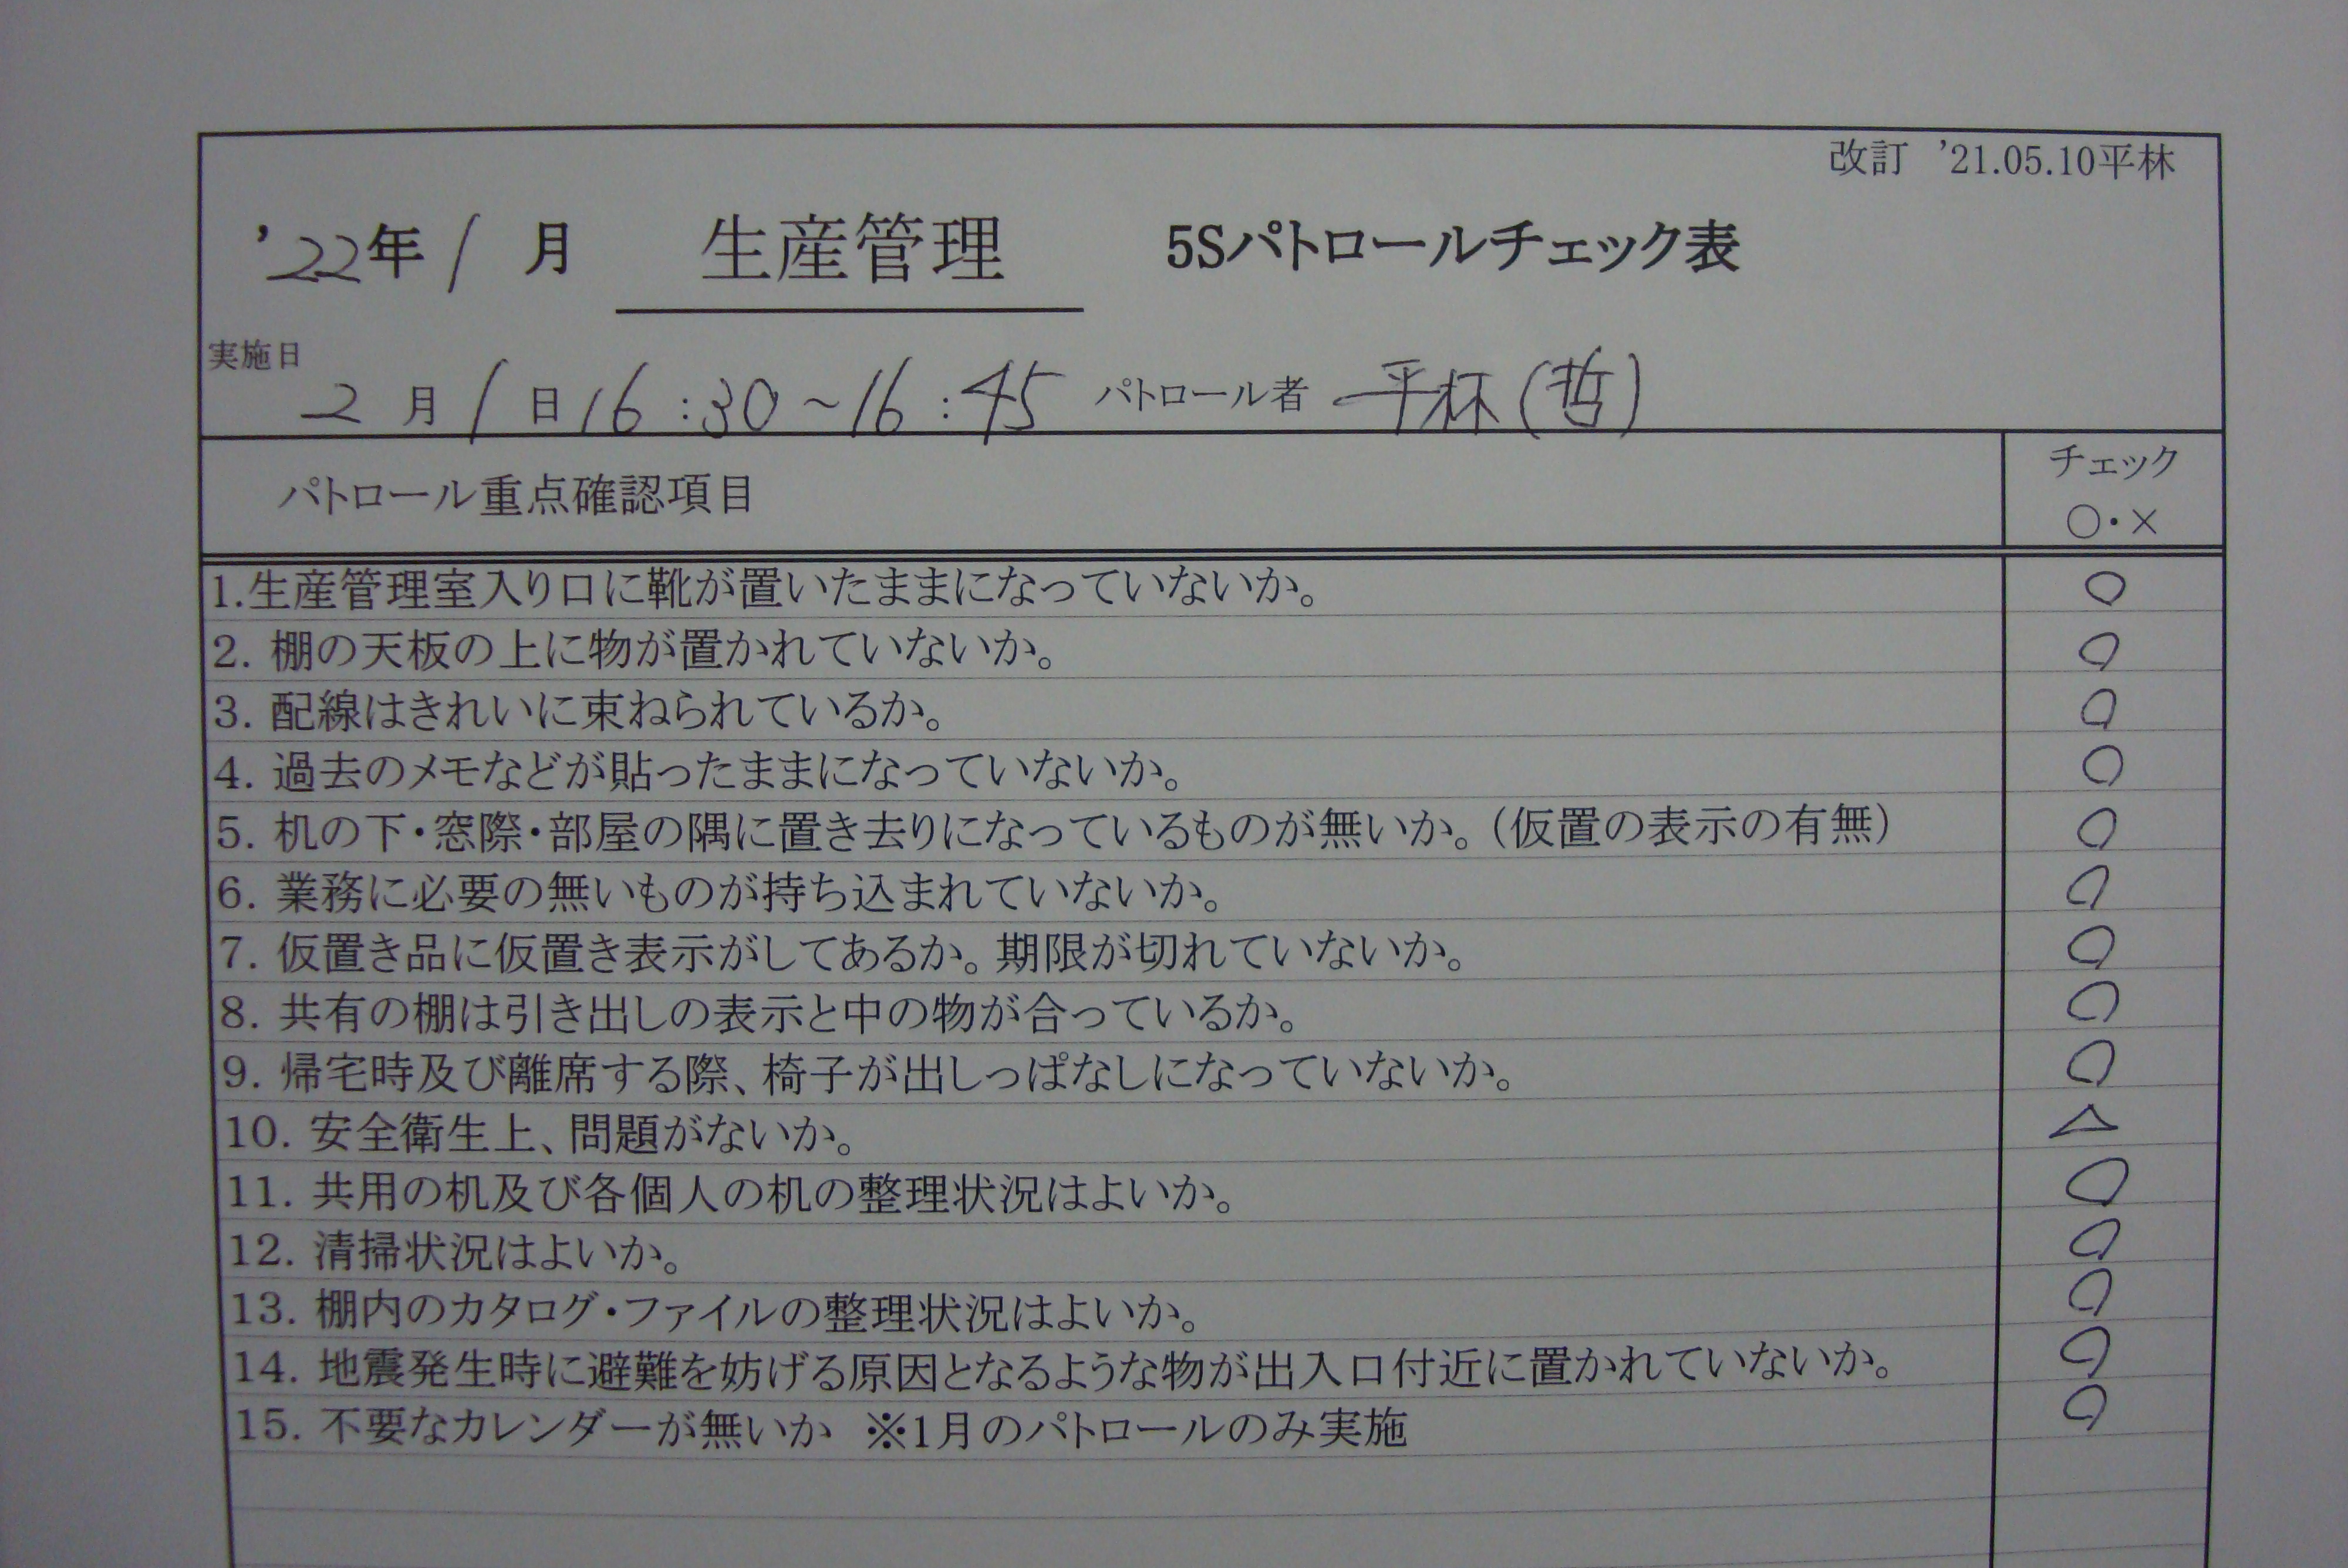 改訂 ’21.05.10平林
’22年 1 月 生産管理 5Sパトロールチェック表
実施日
2 月 1 日 16:30~16:45 パトロール者 平林(哲)
パトロール重点確認項目 チェック
○・×
1.生産管理室入り口に靴が置いたままになっていないか。 ○
2. 棚の天板の上に物が置かれていないか。 ○
3. 配線はきれいに束ねられているか。 ○
4. 過去のメモなどが貼ったままになっていないか。 ○
5. 机の下・窓際・部屋の隅に置き去りになっているものが無いか。(仮置の表示の有無) ○
6. 業務に必要の無いものが持ち込まれていないか。 ○
7. 仮置き品に仮置き表示がしてあるか。期限が切れていないか。 ○
8. 共有の棚は引き出しの表示と中の物が合っているか。 ○
9. 帰宅時及び離席する際、椅子が出しっぱなしになっていないか。 ○
10. 安全衛生上、問題がないか。 △
11. 共用の机及び各個人の机の整理状況はよいか。 ○
12. 清掃状況はよいか。 ○
13. 棚内のカタログ・ファイルの整理状況はよいか。 ○
14. 地震発生時に避難を妨げる原因となるような物が出入口付近に置かれていないか。 ○
15. 不要なカレンダーが無いか ※1月のパトロールのみ実施 ○